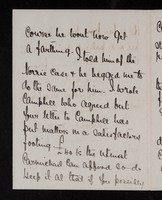 course he wont now get
a farthing. I told him of the
Norris case & he begged me to
do the same for him. I wrote
Campbell who agreed but
your letter to Campbell has
put matters in a satisfactory
footing. This is the utmost
Parmichael can afford so do
keep it at that if you possibly